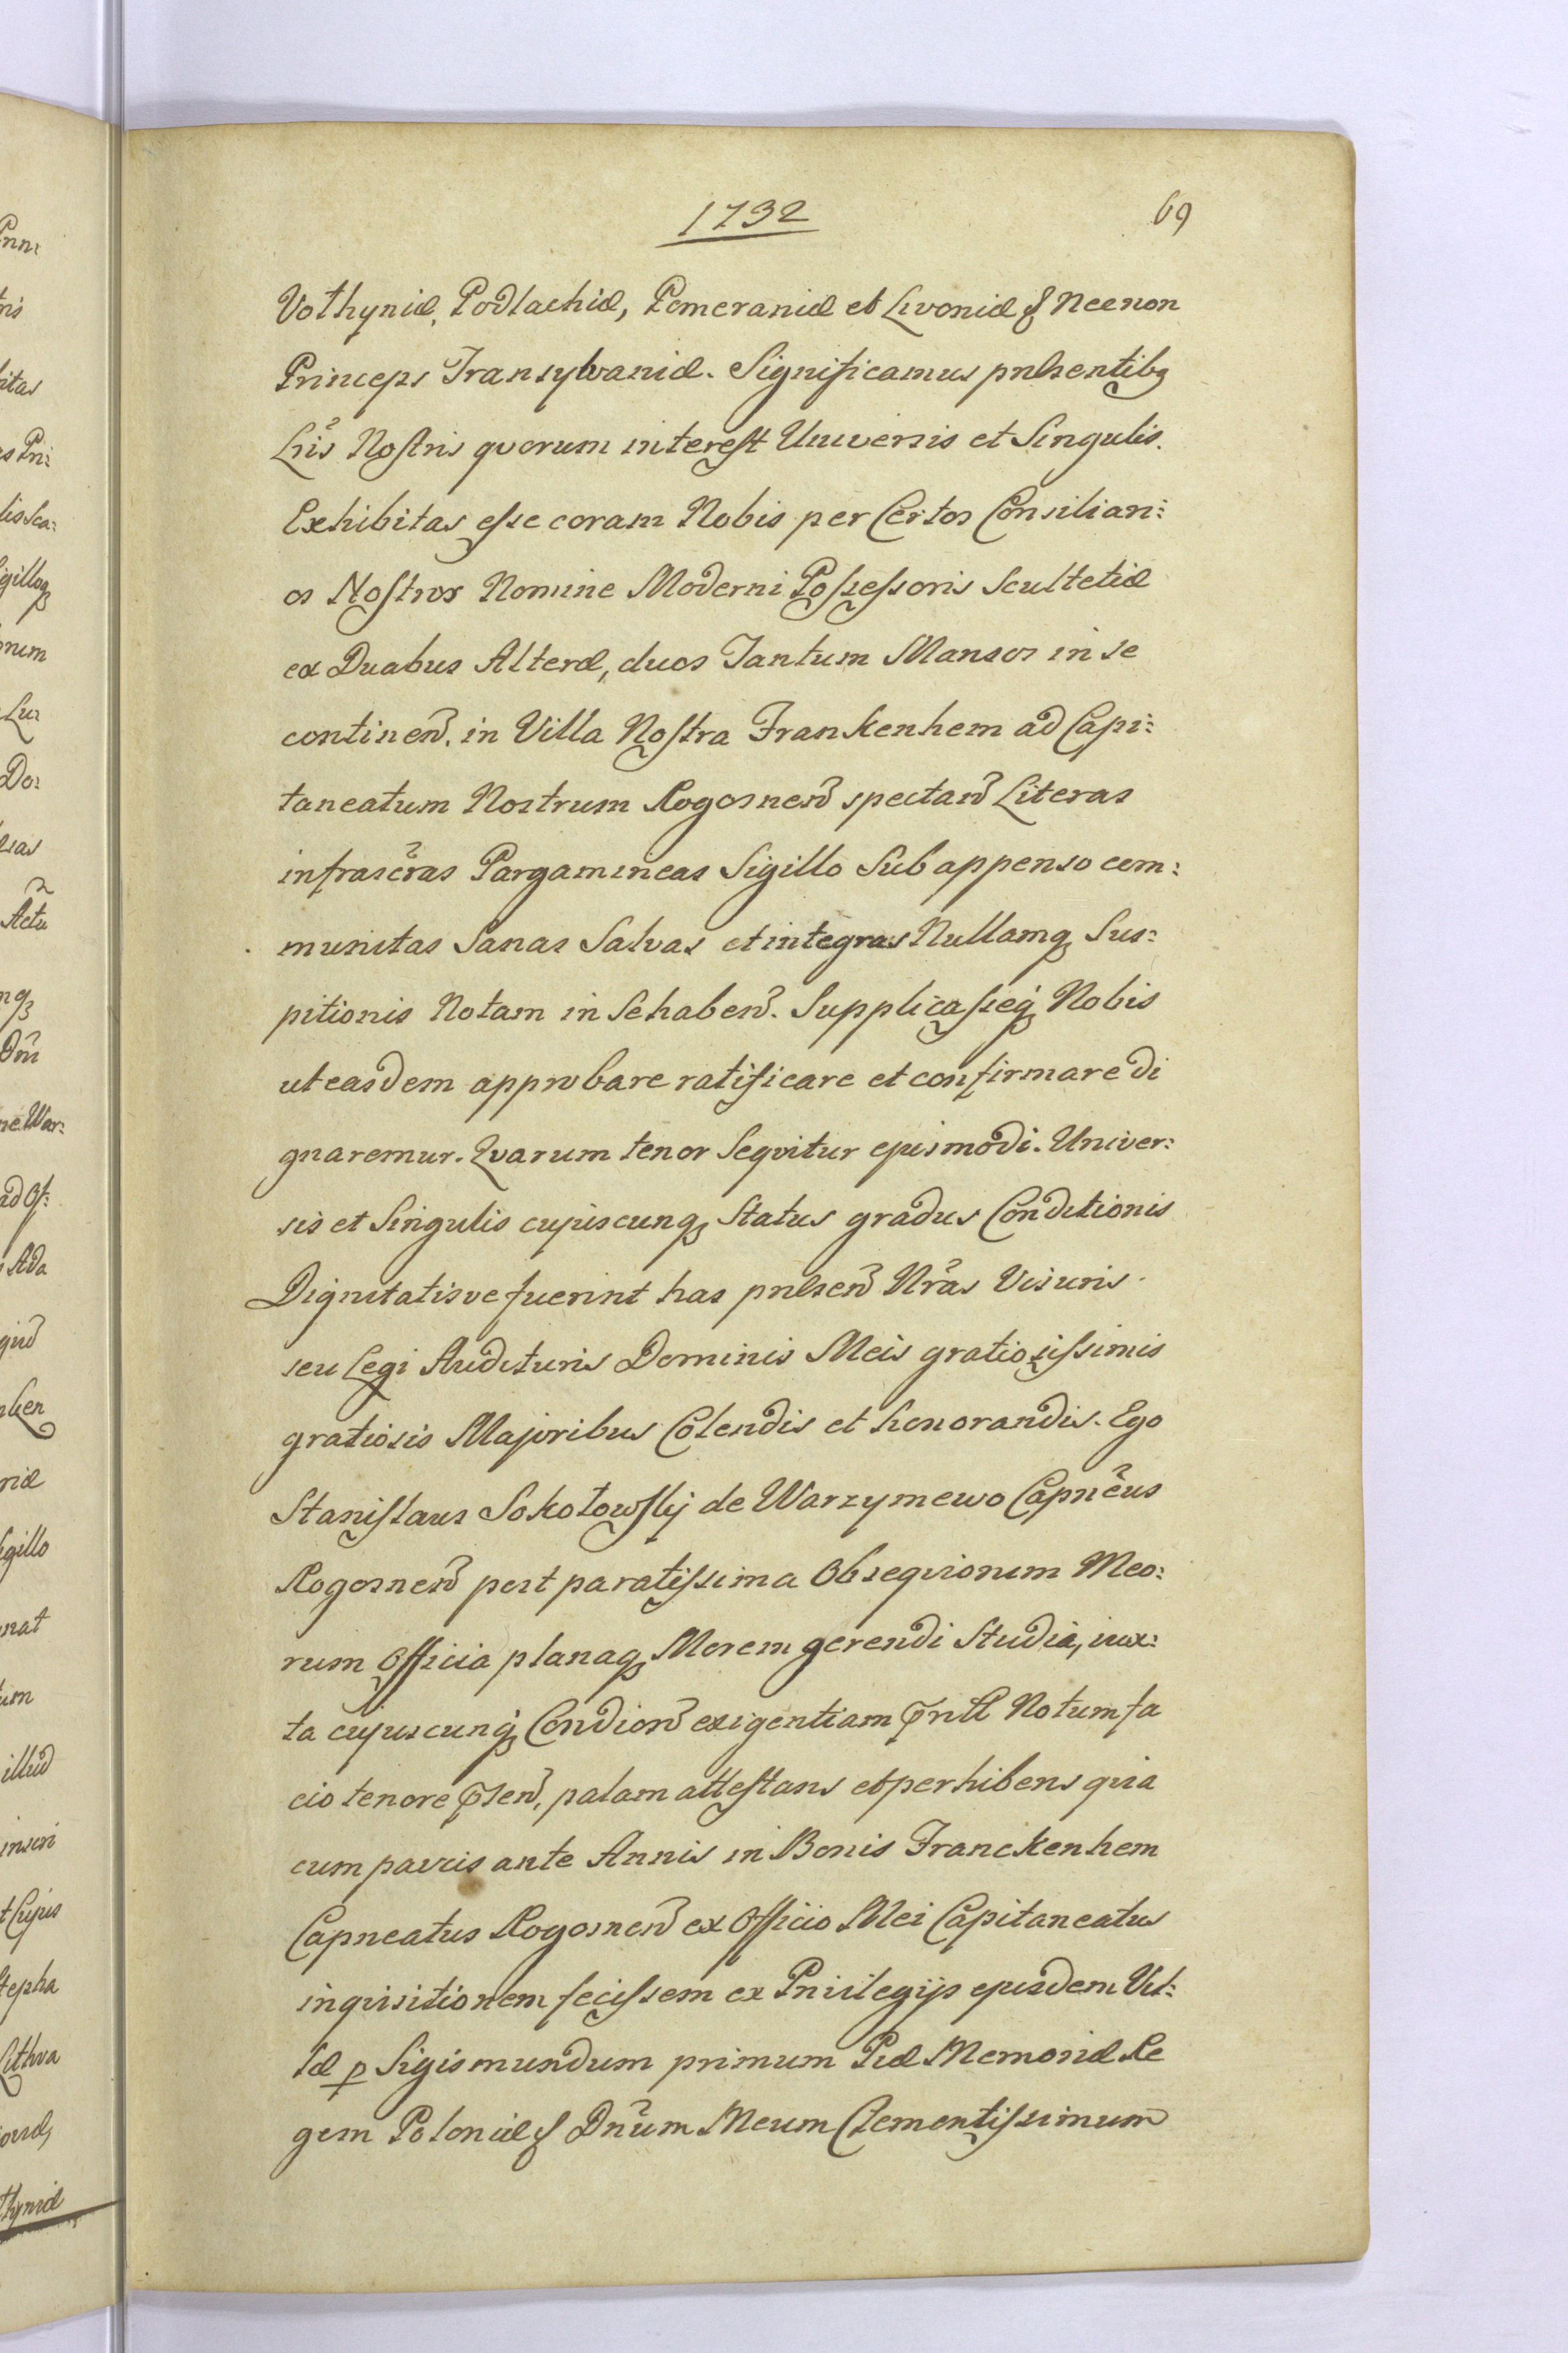 1732
69
Vothyniæ, Podlachiæ, Pomeraniæ et Livoniæ & Necnon
Princeps Transylvaniæ. Significamus pnlsentibq
Lrĩs Nostris qvorum interest Universis et Singulis.
Exhibitas esse coram Nobis per Certos Consiliari:
os Nostros Nomine Moderni Possessoris Scultetiæ
ex Duabus Alteræ, duos Tantum Mansos in se
continen̄. in Villa Nostra Frankenhem ad Capi:
taneatum Nostrum Rogosnen̄ spectan̄ Literas
infrascr̃as Pargamineas Sigillo Sub appenso com:
munitas Sanas Salvas et integras Nullamq Sus:
pitionis Notam in Se haben̄. Supplicasseq Nobis
ut easdem approbare ratificare et confirmare di
gnaremur. Qvarum tenor Seqvitur ejusmodi. Univer:
sis et Singulis cujuscunq Status gradus Conditionis
Dignitatisve fuerint has pnlsen̄ Nr̃as Visuris.
seu Legi Audituris Dominis Meis gratiosissimis
gratiosis Majoribus Colendis et honorandis. Ego
Stanislaus Sokołowskij de Warzymewo Capnẽus
Rogosnen̄ post paratissima Obseqviorum Meo:
rum Officia planaq Morem gerendi Studia, iux:
ta cujuscunq Condion̄ exigentiam Notum fa
cio tenore p̄sen̄, palam attestans et perhibens qvia
cum paucis ante Annis in Bonis Franckenhem
Capneatus Rogosnen̄ ex Officio Mei Capitaneatus
inqvisitionem fecissem ex Privilegijs ejusdem Vil:
læ p Sigismundum primum Piæ Memoriæ Re
gem Poloniæ & Dnũm Meum Clementissimum